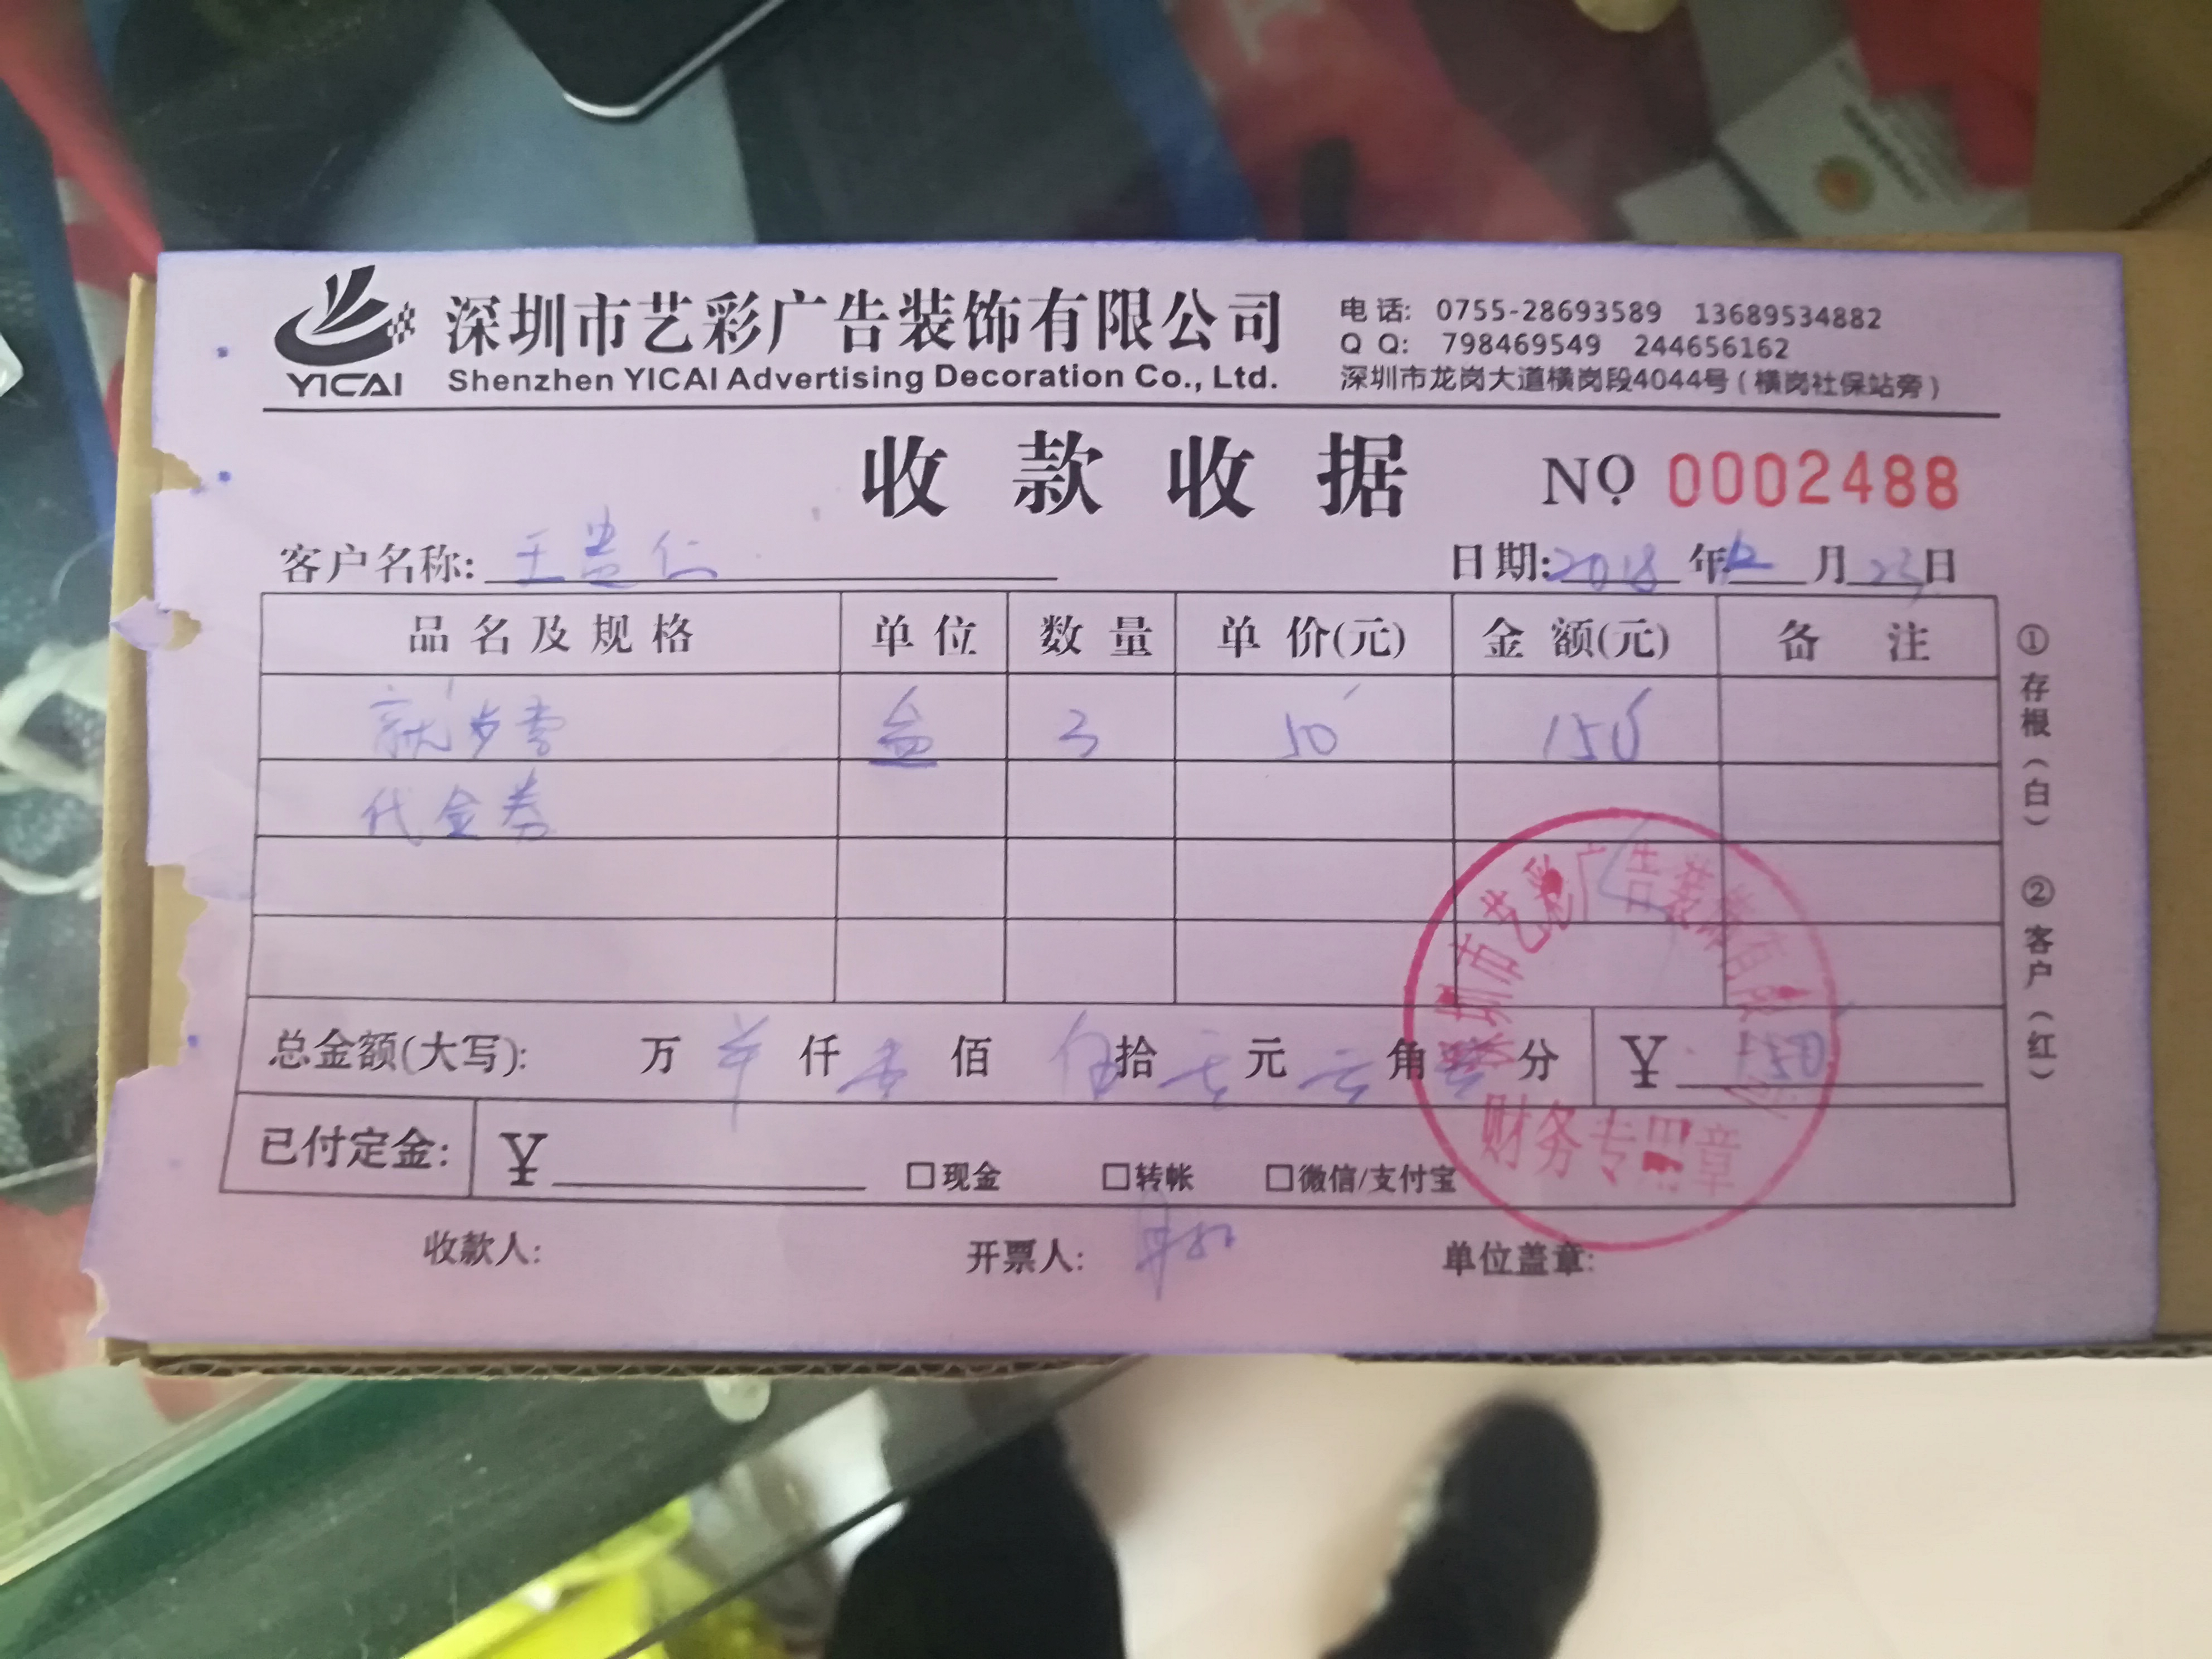 深圳市艺彩广告装饰有限公司
YICAI
Shenzhen YICAI Advertising Decoration Co., Ltd.
电话: 0755-28693589 13689534882
QQ: 798469549 244656162
深圳市龙岗大道横岗段4044号(横岗社保站旁)
收款收据 NO 0002488
客户名称: 王贵仁 日期: 2018年12月23日
品名及规格 单位 数量 单价(元) 金额(元) 备注
盒 3 50 150
代金券
总金额(大写): 万 仟 壹 佰 伍拾 元 角 分 ¥ 150
已付定金: ¥ □现金 □转帐 □微信/支付宝
收款人: 开票人: 单位盖章:
①存根(白) ②客户(红)
深圳市艺彩广告装饰有限公司
财务专用章